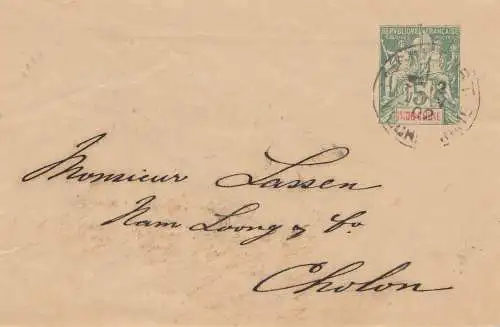 REPUBLIQUE FRANÇAISE
5
INDO-CHINE
Monsieur Lassen
Nam Loong & Co.
Cholon